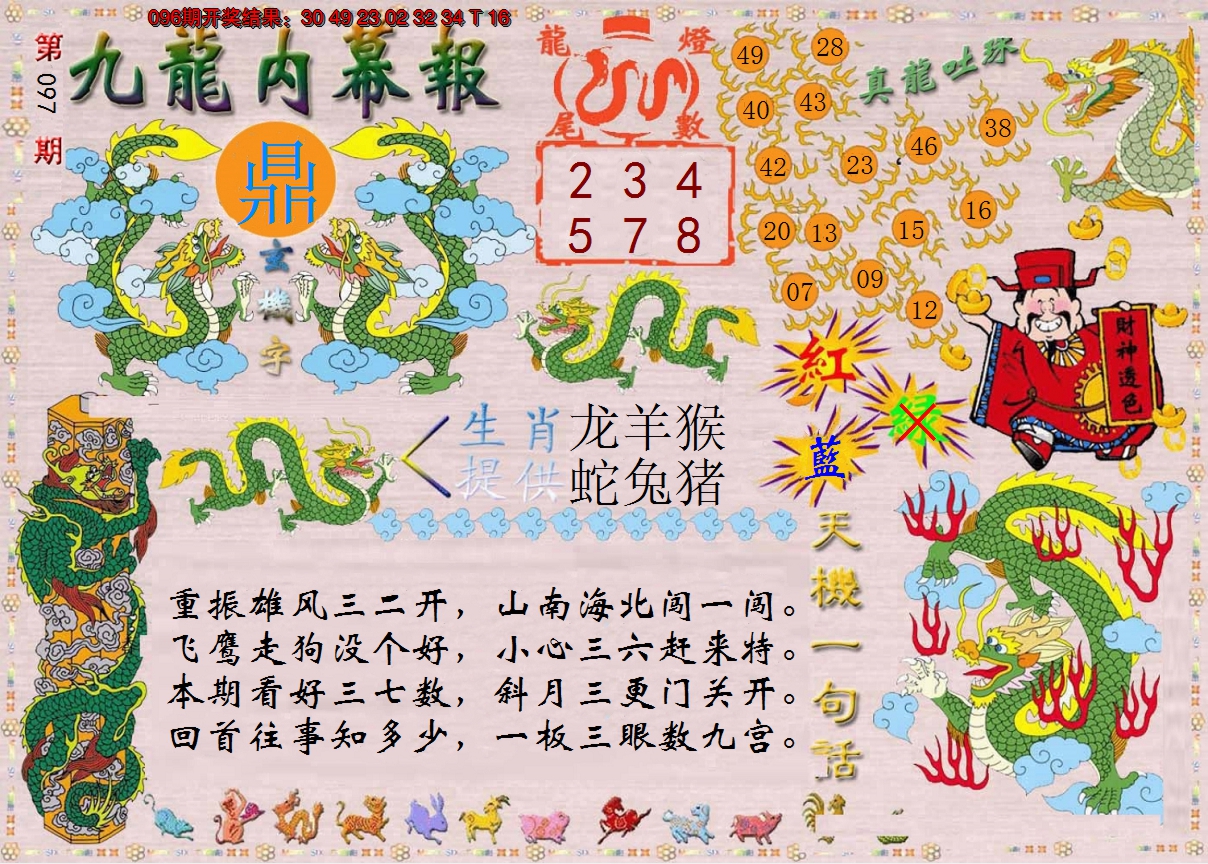 096期开奖结果：30 49 23 02 32 34 T 16
第097期
九龍内幕報
鼎
玄機字
龍燈尾數
2 3 4
5 7 8
真龍吐珠
49 28
40 43
42 23 46 38
20 13 15 16
07 09 12
財神透色
紅
绿
藍
生肖提供
龙羊猴
蛇兔猪
重振雄风三二开，山南海北闯一闯。
飞鹰走狗没个好，小心三六赶来特。
本期看好三七数，斜月三更门关开。
回首往事知多少，一板三眼数九宫。
天機一句話